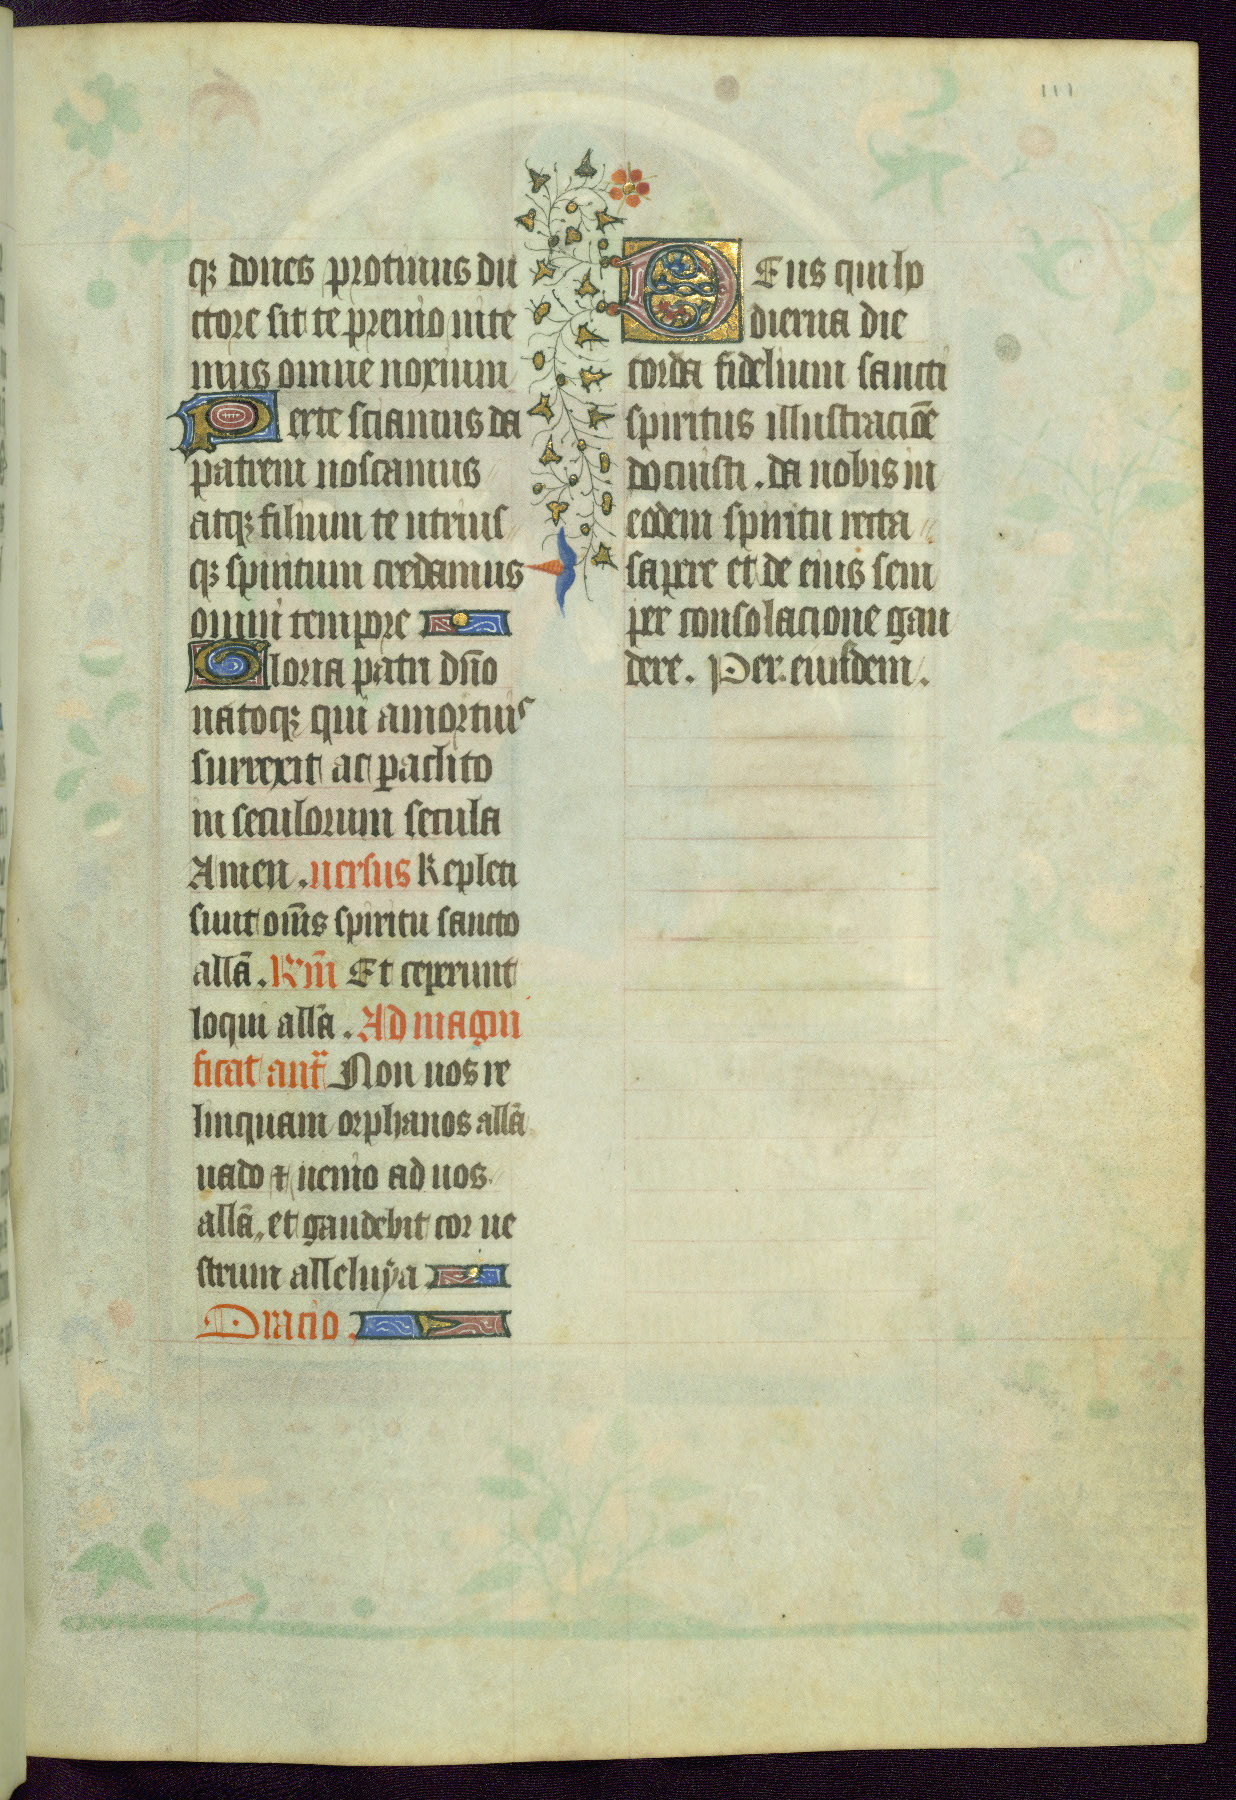 111
qꝫ dones protinus du
ctore sit te preuio uite
mus omne noxium
Perte sciamus da
patrem noscamus
atqꝫ filium te utrius
qꝫ spiritum credamus
omni tempore
Gloria patri dño
natoqꝫ qui a mortuis
surrexit ac paclito
in seculorum secula
Amen. uersus Repleti
sunt om̄s spiritu sancto
allā. Rm̄ Et ceperunt
loqui allā. Ad magni
ficat ant̄ Non uos re
linquam orphanos allā
uado ⁊ uenio ad uos
allā, et gaudebit cor ue
strum alleluya
Oracio.
Deus qui ho
dierna die
corda fidelium sancti
spiritus illustracioē
docuisti. da nobis in
eodem spiritu recta
sapere et de eius sem
per consolacione gau
dere. Per. eiusdem.